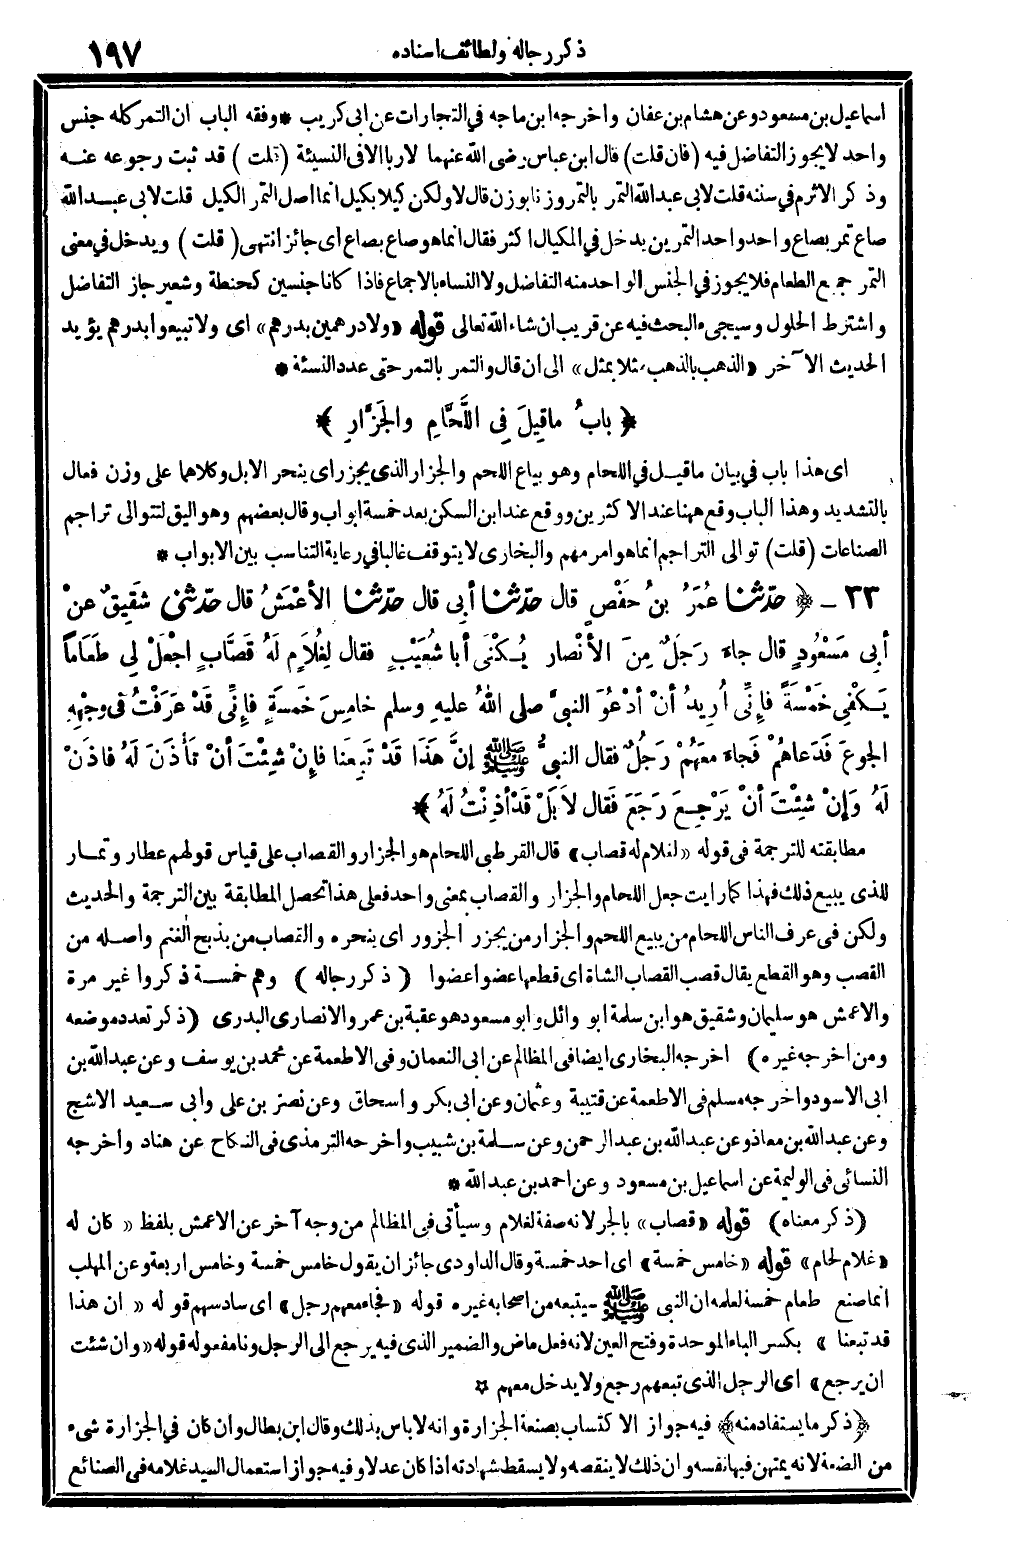 ذكر رجاله ولطائف اسناده
١٩٧
اسماعيل بن مسعود وعن هشام بن عفان واخرجه ابن ماجه في التجارات عن ابى كريب * وفقه الباب ان التمر كله جنس
واحد لا يجوز التفاضل فيه (فان قلت) قال ابن عباس رضى الله عنهما لا ربا الا فى النسيئة (قلت) قد ثبت رجوعه عنه
وذكر الاثرم في سننه قلت لابى عبد الله التمر بالتمر وزنا بوزن قال لا ولكن كيلا بكيل انما اصل التمر الكيل قلت لابى عبد الله
صاع تمر بصاع واحد واحد التمرين يدخل في المكيال اكثر فقال انما هو صاع بصاع اى جائز انتهى (قلت) ويدخل في معنى
التمر جميع الطعام فلا يجوز في الجنس الواحد منه التفاضل ولا النساء بالاجماع فاذا كانا جنسين كحنطة وشعير جاز التفاضل
واشترط الحلول وسيجىء البحث فيه عن قريب ان شاء الله تعالى قوله «ولا درهمين بدرهم» اى ولا تبيعوا بدرهم يؤيد
الحديث الآخر «الذهب بالذهب مثلا بمثل» الى ان قال والتمر بالتمر حتى عدد النسئة *
﴿ بابُ ماقِيلَ فِى اللَّحَّامِ والجَزَّارِ ﴾
اى هذا باب في بيان ما قيل في اللحام وهو بياع اللحم والجزار الذى يجزر اى ينحر الابل وكلاهما على وزن فعال
بالتشديد وهذا الباب وقع ههنا عند الاكثرين ووقع عند ابن السكن بعد خمسة ابواب وقال بعضهم وهو اليق لتتوالى تراجم
الصناعات (قلت) توالى التراجم انما هو امر مهم والبخارى لا يتوقف غالبا في رعاية التناسب بين الابواب *
٣٣ - ﴿ حَدَّثَنَا عُمَرُ بنُ حَفْصٍ قال حَدَّثَنَا أبِى قال حَدَّثَنَا الأعْمَشُ قال حَدَّثَنِى شَقِيقٌ عنْ
أبِى مَسْعُودٍ قال جاءَ رَجُلٌ مِنَ الأنْصارِ يُكْنَى أبا شُعَيْبٍ فقال لِغُلَامٍ لَهُ قَصَّابٍ اجْعَلْ لِى طَعَاماً
يَكْفِى خَمْسَةً فإنِّى أُرِيدُ أنْ أدْعُوَ النبىَّ صلى اللهُ عليهِ وسلم خامِسَ خَمسَةٍ فإنِّى قَدْ عَرَفْتُ فى وجْهِهِ
الجوعَ فَدَعاهُمْ فَجاءَ مَعَهُمْ رَجُلٌ فقال النبىُّ ﷺ إنَّ هَذَا قَدْ تَبِعَنا فإنْ شِئْتَ أنْ تَأْذَنَ لَهُ فاذَنْ
لَهُ وَإنْ شِئْتَ أنْ يَرْجِعَ رَجَعَ فَقال لاَ بَلْ قَدْ أذِنْتُ لَهُ ﴾
مطابقته للترجمة فى قوله «لغلام له قصاب» قال القرطبى اللحام هو الجزار والقصاب على قياس قولهم عطار وتمار
للذى يبيع ذلك فهذا كما رايت جعل اللحام والجزار والقصاب بمعنى واحد فعلى هذا تحصل المطابقة بين الترجمة والحديث
ولكن فى عرف الناس اللحام من يبيع اللحم والجزار من يجزر الجزور اى ينحره والقصاب من يذبح الغنم واصله من
القصب وهو القطع يقال قصب القصاب الشاة اى قطعها عضوا عضوا (ذكر رجاله) وهم خمسة ذكروا غير مرة
والاعمش هو سليمان وشقيق هو ابن سلمة ابو وائل وابو مسعود هو عقبة بن عمرو الانصارى البدرى (ذكر تعدد موضعه
ومن اخرجه غيره) اخرجه البخارى ايضا فى المظالم عن ابى النعمان وفى الاطعمة عن محمد بن يوسف وعن عبد الله بن
ابى الاسود واخرجه مسلم فى الاطعمة عن قتيبة وعثمان وعن ابى بكر واسحاق وعن نصر بن على وابى سعيد الاشج
وعن عبد الله بن معاذ وعن عبد الله بن عبد الرحمن وعن سلمة بن شبيب واخرجه الترمذى فى النكاح عن هناد واخرجه
النسائى فى الوليمة عن اسماعيل بن مسعود وعن احمد بن عبد الله *
(ذكر معناه) قوله «قصاب» بالجر لانه صفة لغلام وسيأتى فى المظالم من وجه آخر عن الاعمش بلفظ «كان له
«غلام لحام» قوله «خامس خمسة» اى احد خمسة وقال الداودى جائز ان يقول خامس خمسة وخامس اربعة وعن المهلب
انما صنع طعام خمسة لعلمه ان النبى ﷺ سيتبعه من اصحابه غيره قوله «فجاء معهم رجل» اى سادسهم قوله «ان هذا
قد تبعنا» بكسر الباء الموحدة وفتح العين لانه فعل ماض والضمير الذى فيه يرجع الى الرجل ونا مفعوله قوله «وان شئت
ان يرجع» اى الرجل الذى تبعهم رجع ولا يدخل معهم *
﴿ذكر ما يستفاد منه﴾ فيه جواز الاكتساب بصنعة الجزارة وانه لا باس بذلك وقال ابن بطال وان كان في الجزارة شىء
من الضعة لانه يمتهن فيها نفسه وان ذلك لا ينقصه ولا يسقط شهادته اذا كان عدلا وفيه جواز استعمال السيد غلامه فى الصنائع